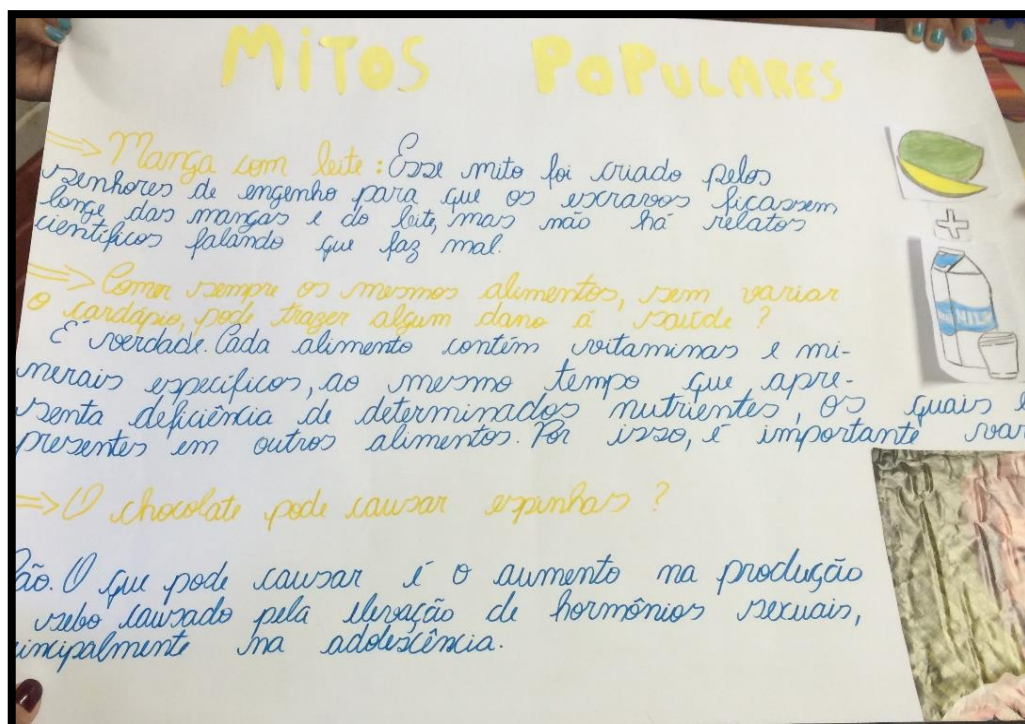 MiTOS POPULARES
⇒ Manga com leite: Esse mito foi criado pelos
senhores de engenho para que os escravos ficassem
longe das mangas e do leite, mas não há relatos
científicos falando que faz mal.
+
MILK
⇒ Comer sempre os mesmos alimentos, sem variar
o cardápio, pode trazer algum dano á saúde?
É verdade. Cada alimento contém vitaminas e mi-
nerais específicos, ao mesmo tempo que apre-
senta deficiência de determinados nutrientes, os quais
presentes em outros alimentos. Por isso, é importante var
⇒ O chocolate pode causar espinhas?
ão. O que pode causar é o aumento na produção
sebo causado pela elevação de hormônios sexuais,
incipalmente na adolescência.